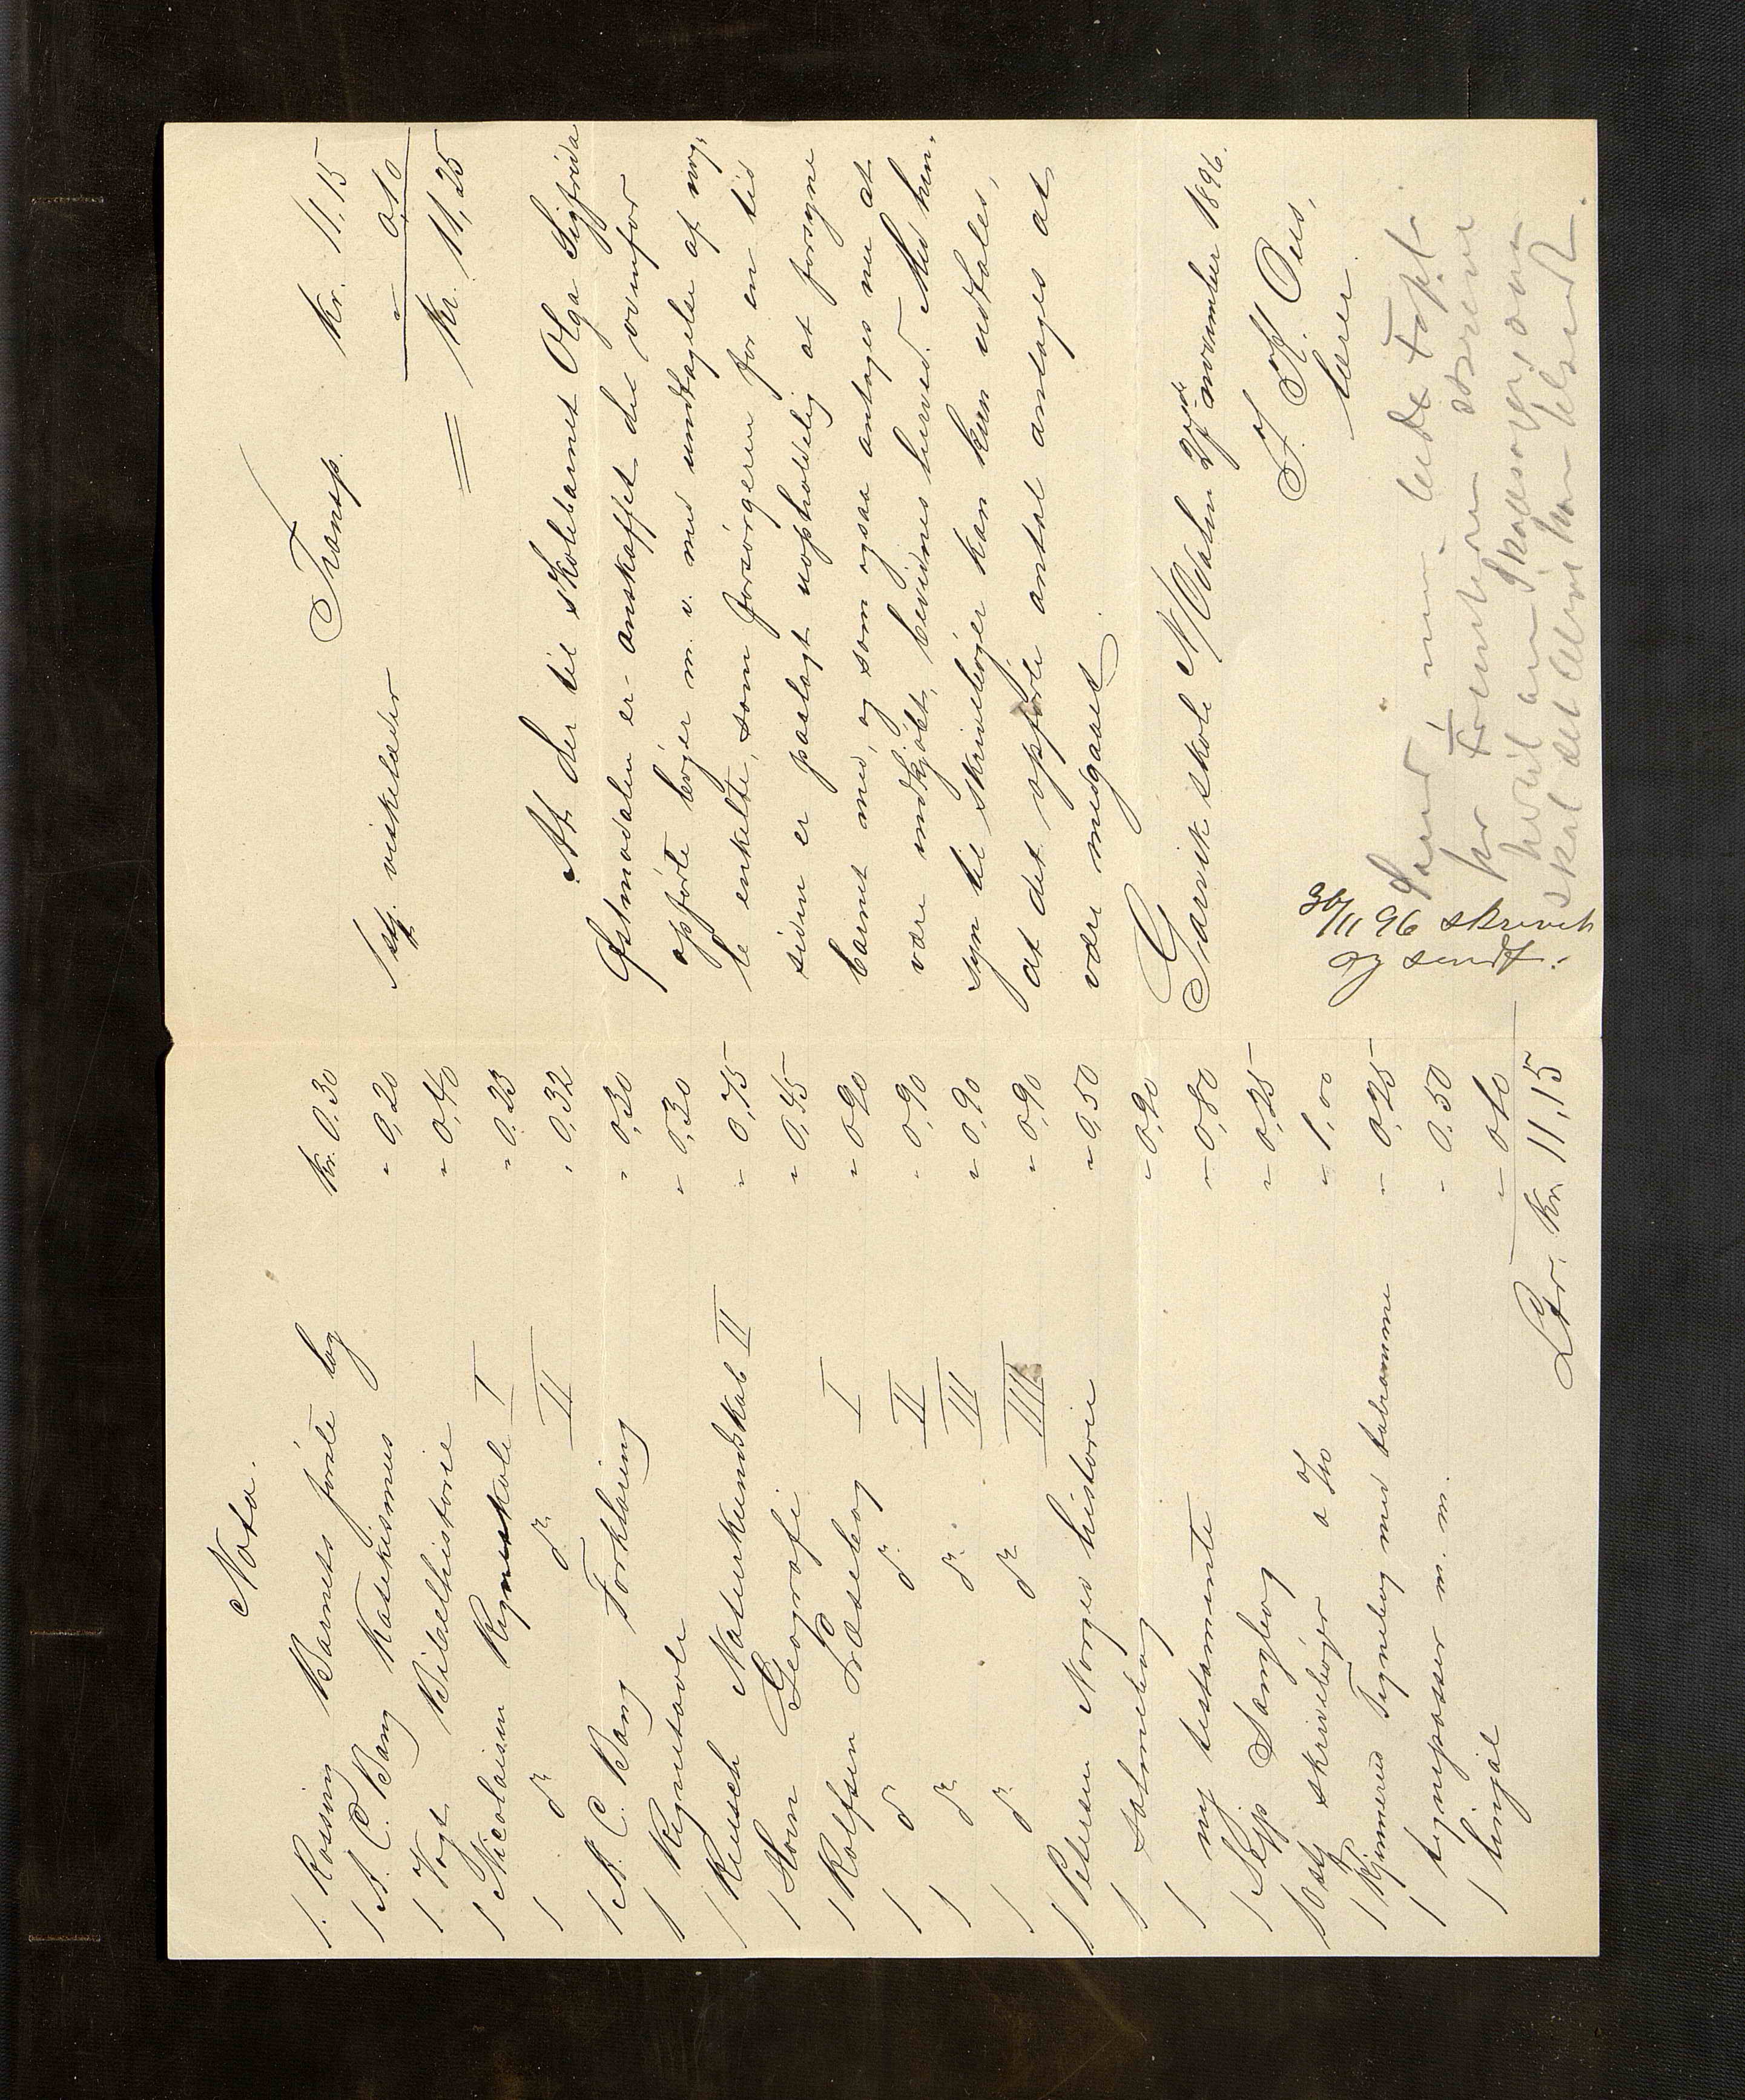 Nota.
1. Rossing Barnets første bog Kr. 0,30
1 A. C. Bang Katekismus " 0,20
1 Vogt Bibelhistorie " 0,40
1 Nicolaisen Regneskole I " 0,23
1 do do II " 0,32
1 A. C. Bang Forklaring " 0,30
1 Regnetavle " 0,30
1 Reusch Naturkundskab II " 0,75
1 Horn Geografi " 0,45
1 Rolfsen Læsebog I " 0,90
1 do do II " 0,90
1 do do III " 0,90
1 do do IIII " 0,90
1 Petersen Norges historie " 0,50
1 salmebog " 0,90
1 nyt testamente " 0,80
1 Sejp Sangbog " 0,25
10 stk skrivebøger a 0/10 " 1,00
1 Kjennerud Tegnebog med tabramme " 0,25
1 tegnepasser m. m. " 0,50
1 linjal " 0,10
Ltr. Kr. 11,15
Transp. Kr. 11,15
1 stk. viskelæder " 0,10
Kr. 11,25
At der til skolebarnet Olga Sigfrida
Østmodalen er anskaffet det ovenfor
opførte bøger m. v. med undtagelse af nog-
le enkelte, som forsørgeren for en tid
siden er paalagt uopholdelig at forsyne
barnet med, og som ogsaa antages nu at
være indkjøbt, bevidnes herved. Med hen-
syn til skrivebøger kan kun udtales,
at det opførte antal antages at
være medgaaet.
Garvik skole N/Dalen 27de november 1896.
lærer.
30/11 96 skrevet
og sendt.
skal det